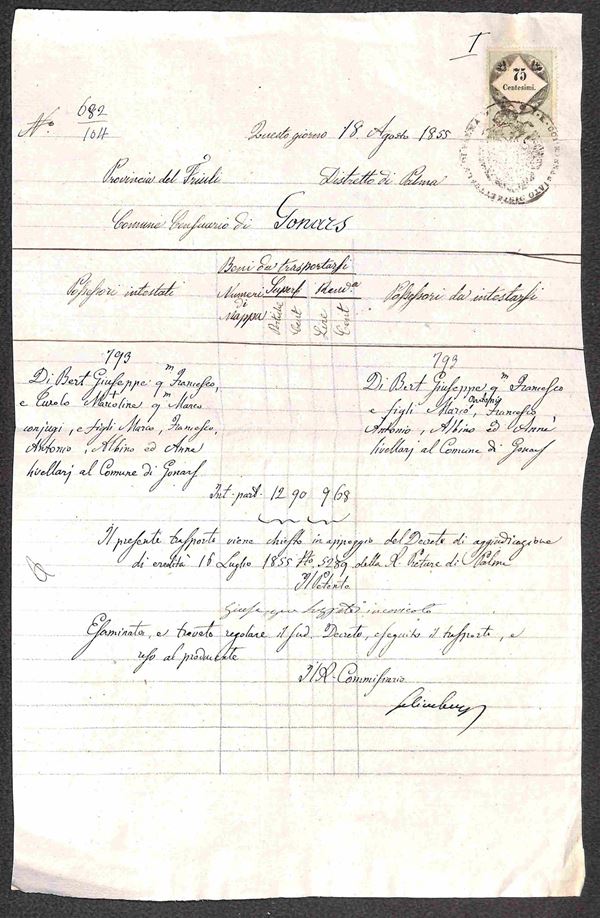 I
75
Centesimi.
No. 682
104
Questo giorno 18 Agosto 1855
Provincia del Friuli Distretto di Palma
Comune Censuario di Gonars
Possessori intestati
Beni da trasportarsi
Numeri di Mappa
Superf
Rendta
Pertiche
Cent
Lire
Cent
Possessori da intestarsi
793
Di Bert Giuseppe qm Francesco,
e Marcolina qm Marco
conjugi, e figli Marco, Francesco,
Antonio, Albino ed Anna
livellarj al Comune di Gonars
793
Di Bert Giuseppe qm Francesco
e figli Marco, Francesco
Antonio, Albino ed Anna
livellarj al Comune di Gonars
Int. part. 12 90 9 68
Il presente trasporto viene chiesto in appoggio del Decreto di aggiudicazione
di eredità 16 Luglio 1855 No 5289 della R. Pretura di Palma
Il Petente
Esaminato, e trovato regolare il sud. Decreto, eseguito il trasporto, e
reso al producente
Il R. Commissario